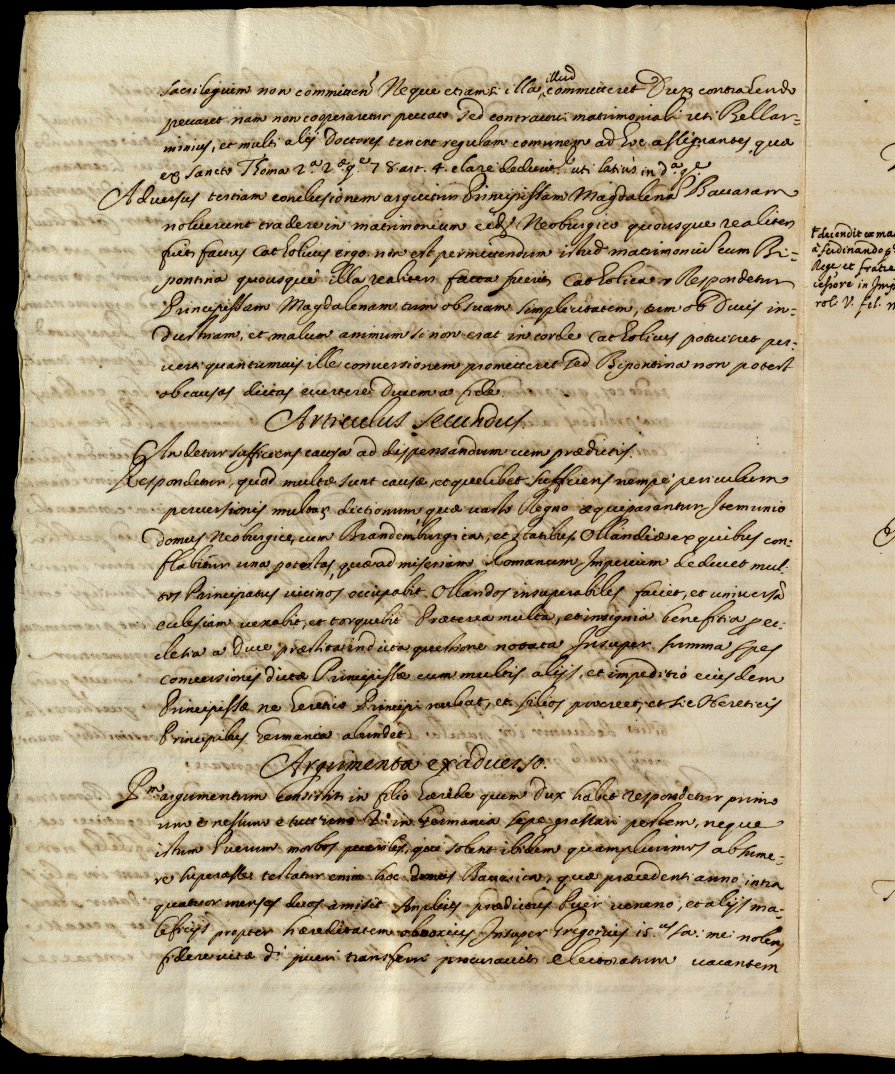 sacrilegium non committens Neque etiam si illa illud committeret Dux contrahendo
peccaret nam non cooperaretur peccato sed contractui matrimoniali uti Bellar=
minius, et multi alij Doctores tenent regulam comunem ad hoc assignantes, quæ
ex Sancto Thoma 2.a 2.æ q.e 78 art. 4. clare deducit. uti latius in d.a q.e
Adversus tertiam conclusionem arguitur Principissam Magdalenam Bavaram
noluerunt tradere in matrimonium Neoburgico quousque realiter
fuit factus Catholicus ergo non est permittendum istud matrimonium cum Bi=
pontina quousque illa realiter facta fuerit Catholica Respondetur
Principissam Magdalenam tum ob suam simplicitatem, tum ob Ducis in=
dustriam, et malum animum si non erat in corde Catholicus potuisset per=
verti quantumvis ille conversionem promitteret sed Bipontina non potest
ob causas dictas evertere Ducem a fide
Articulus secundus.
An detur sufficiens causa ad dispensandum cum prædictis.
Respondetur, quod multæ sunt causæ, et quælibet sufficiens nempe periculum
perversionis multar. dictionum, quæ vasto Regno æquiparantur Item unio
domus Neoburgicæ cum Brandemburgica, et statibus Ollandiæ ex quibus con=
flabitur una potestas, quæ ad miseriam Romanum Imperium deducet mul=
tos Principatus vicinos occupabit Ollandos insuperabiles faciet, et universa
eclesiam vexabit, et torquebit Præterea multa, et insignia benefitia ec=
clesia a Duce præstita in dicta questione notata Insuper summa spes
conversionis dictæ Principissæ cum multis alijs, et impeditio eiusdem
Principissæ ne heretico Principi nubat, et filios procreet, et sic Hereticis
Principibus Germania abundet
Argumenta ex adverso.
P.m argumentum consistit in filio hærede quem Dux habet respondetur primo
uno è nessuno è tutt'uno 2.o in Germania sepe grassari pestem, neque
istum Puerum morbos pueriles, qui solent ibidem quamplurimos absume=
re superasse testatur enim hoc domus Bavarica, quæ præcedenti anno intra
quatuor menses duos amisit Amplius prædictus Puer veneno, et alijs ma=
leficijs propter hæreditatem obnoxius Insuper Gregorius 15.us sa: me: nolens
fidere vitæ d.i pueri transferri procuravit Electoratum vacantem
descendit ex ma
à Ferdinando p.o
Rege et fratre
cessore in Imp
rol. V. fil.